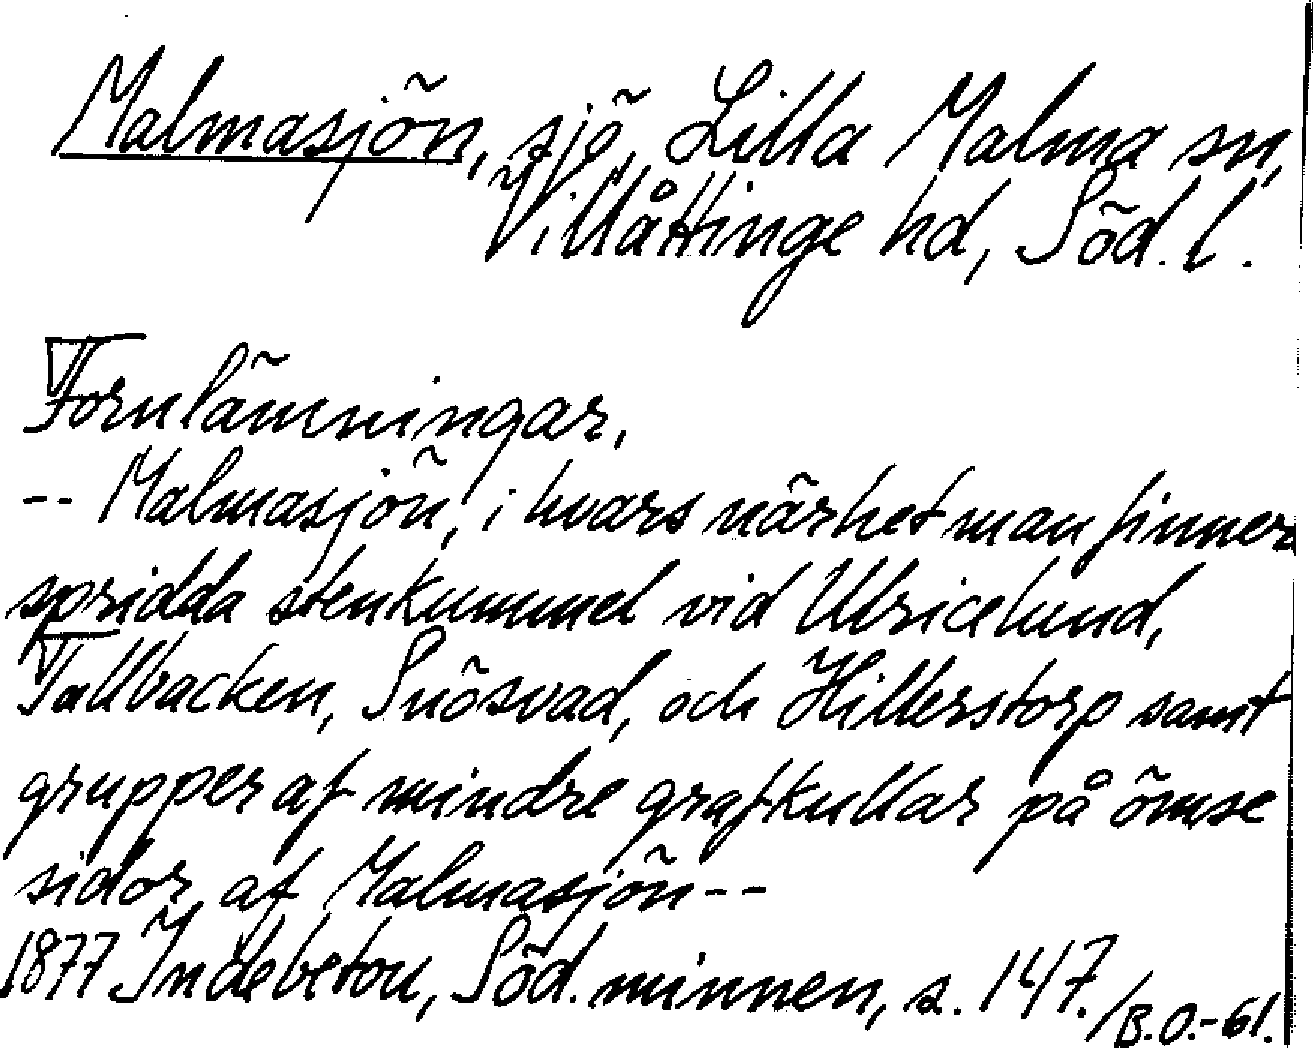 Malmasjön, sjö, Lilla Malma sn,
Villåttinge hd, Söd. l.
Fornlämningar.
-- Malmasjön, i hvars närhet man finner
spridda stenkummel vid Ulricelund,
Tallbacken, Snösvad, och Hillerstorp samt
grupper af mindre grafkullar på ömse
sidor af Malmasjön --
1877 Indebetou, Söd. minnen, s. 147. /B.O.-61.